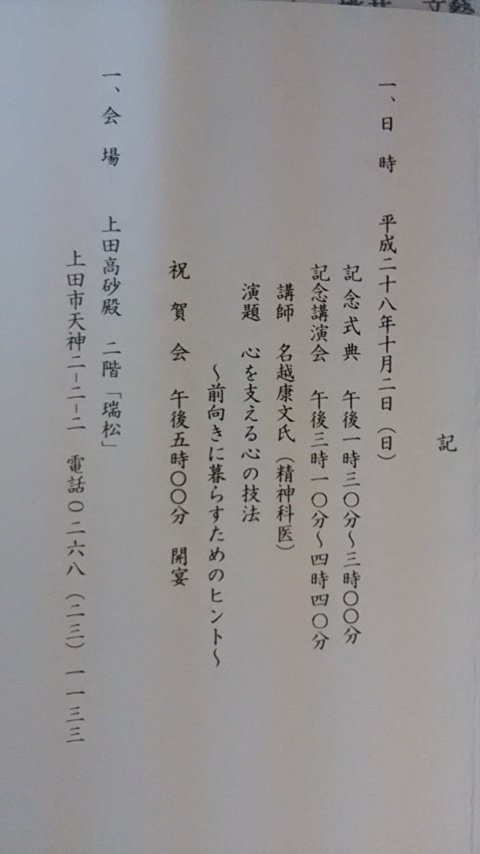 記
一、日時 平成二十八年十月二日(日)
記念式典 午後一時三〇分~三時〇〇分
記念講演会 午後三時一〇分~四時四〇分
講師 名越康文氏(精神科医)
演題 心を支える心の技法
~前向きに暮らすためのヒント~
祝賀会 午後五時〇〇分 開宴
一、会場 上田高砂殿 二階「瑞松」
上田市天神二-二-二 電話〇二六八(二三)一一三三